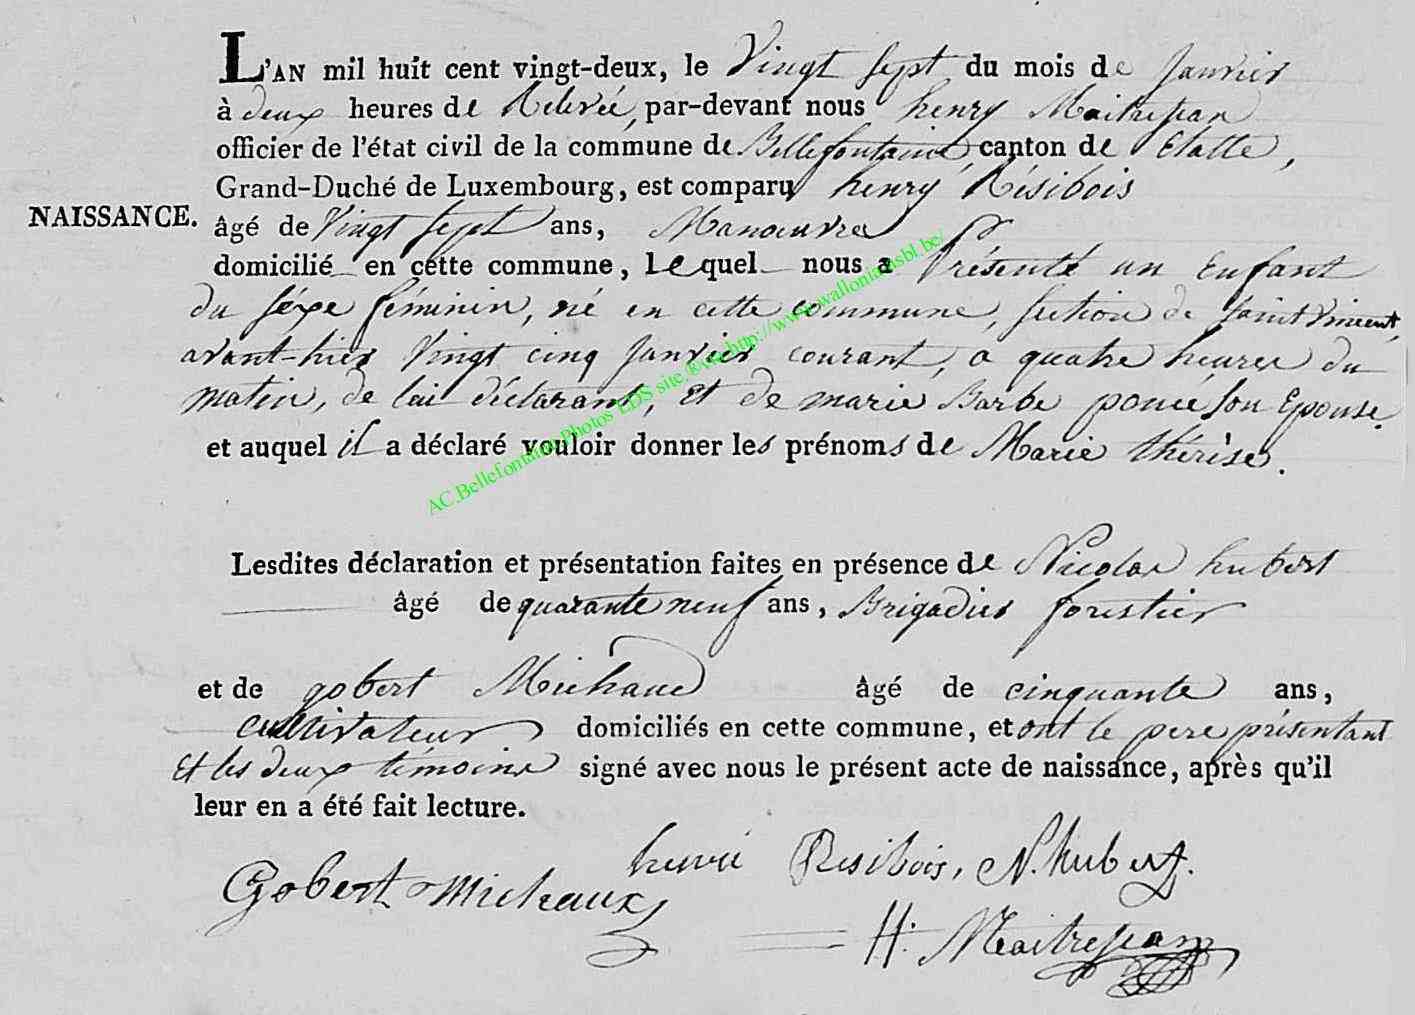 L'AN mil huit cent vingt-deux, le Vingt Sept du mois de Janvier
à deux heures de Relevée, par-devant nous henry Maitrejean
officier de l'état civil de la commune de Bellefontaine, canton de Etalle,
Grand-Duché de Luxembourg, est comparu henry Résibois
NAISSANCE.
âgé de Vingt Sept ans, Manoeuvre
domicilié en cette commune, lequel nous a Présenté un Enfant
du séxe féminin, né en cette commune, section de Saint Vincent,
avant-hier Vingt cinq Janvier courant, a quatre heures du
matin, de lui déclarant, et de marie Barbe poncé son Epouse.
et auquel il a déclaré vouloir donner les prénoms de Marie thérèse.
AC.Bellefontaine Photos LDS site http://www.wallonia.asbl.be/
Lesdites déclaration et présentation faites en présence de Nicolas hubert
âgé de quarante neuf ans, Brigadier forestier
et de gobert Michaud âgé de cinquante ans,
cultivateur domiciliés en cette commune, et ont le pere présentant
Et les deux témoins signé avec nous le présent acte de naissance, après qu'il
leur en a été fait lecture.
henri Resibois, N. hubert.
Gobert Michaux
H. Maitrejean